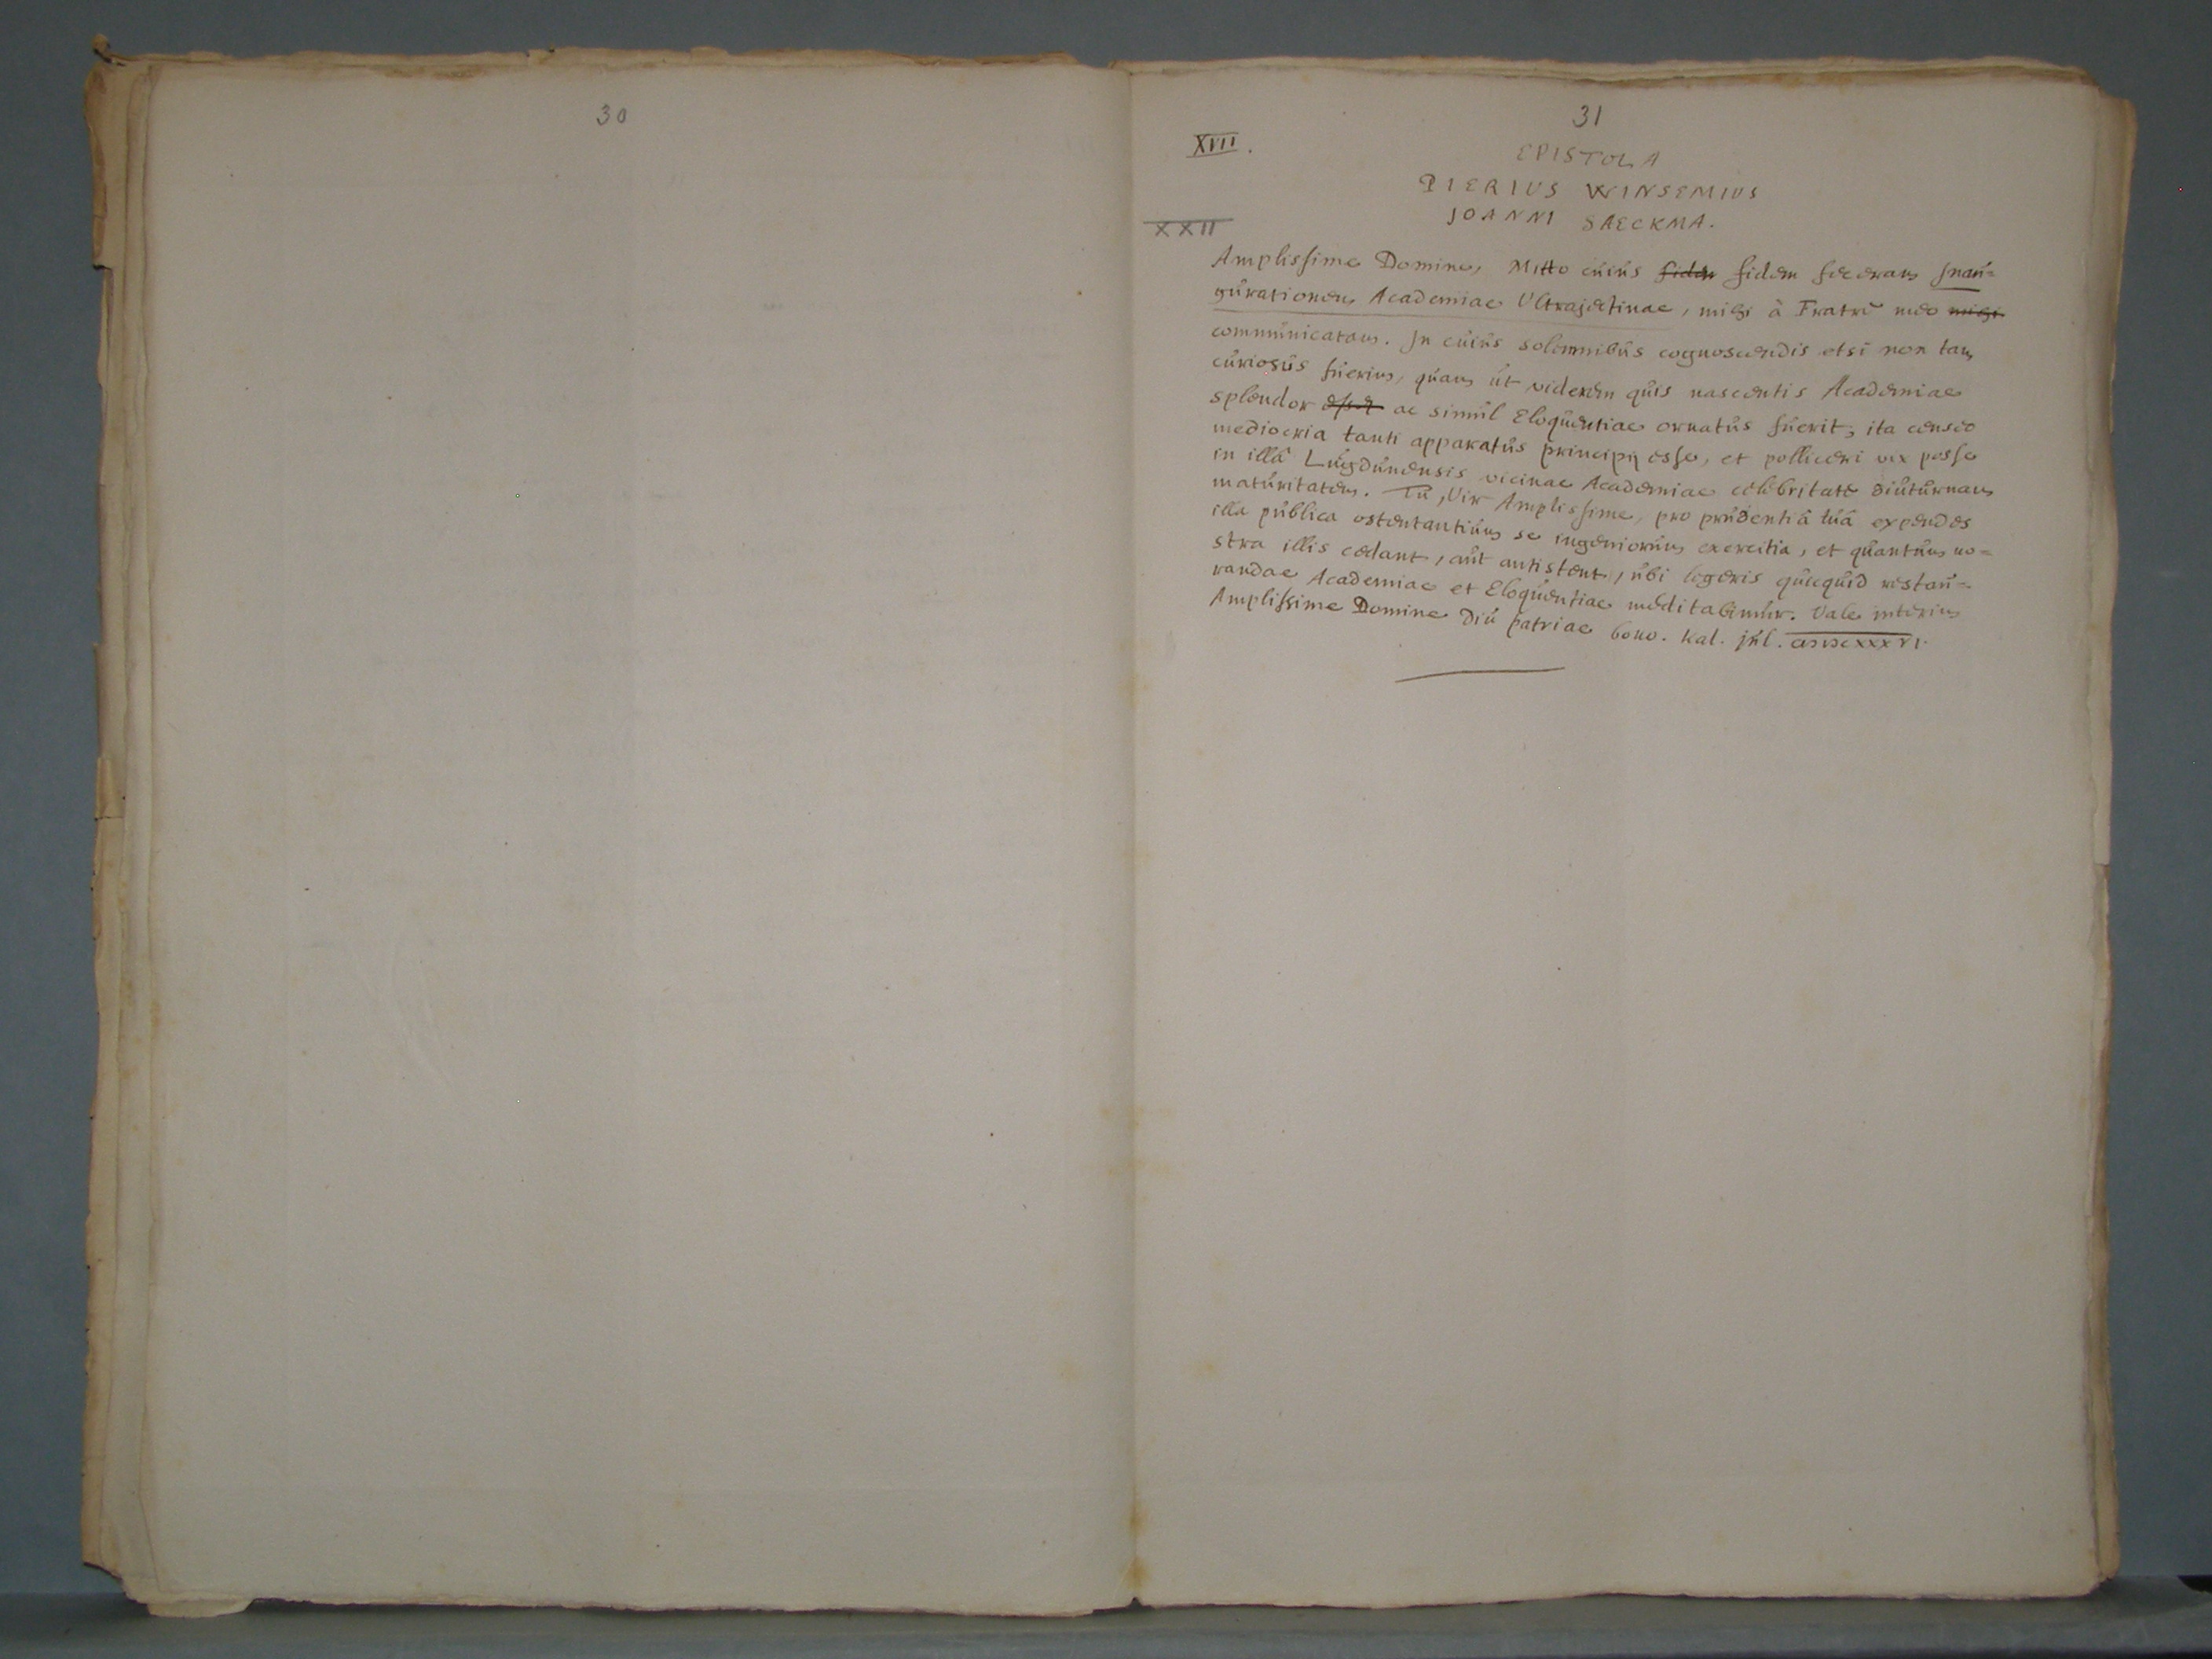 30
31
XVII.
EPISTOLA
PIERIUS WINSEMIUS
JOANNI SAECKMA.
XXII
Amplissime Domine, Mitto cuius fidem fidem feceram Inau=
gurationem Academiae Ultrajectinae, mihi à Fratre meo mihi
communicatam. In cuius solemnibus cognoscendis etsi non tam
curiosus fuerim, quam ut viderem quis nascentis Academiae
splendor esset ac simul Eloquentiae ornatus fuerit, ita censeo
mediocria tanti apparatus principij esse, et polliceri vix posse
in illâ Lugdunensis vicinae Academiae celebritate diuturnam
maturitatem. Tu, Vir Amplissime, pro prudentiâ tuâ expendes
illa publica ostentantium se ingeniorum exercitia, et quantum no=
stra illis cedant, aut antistent, ubi legeris quicquid restau=
randae Academiae et Eloquentiae meditabimur. Vale interim
Amplissime Domine diu patriae bono. Kal. jul. CIƆIƆCXXXVI.